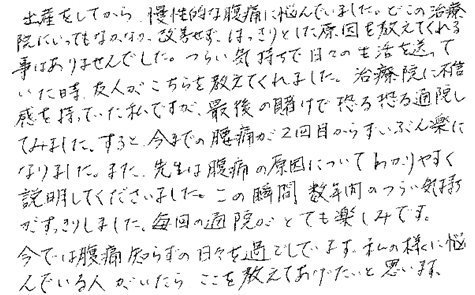 出産をしてから、慢性的な腰痛に悩んでいました。どこの治療
院にいってもなかなか改善せず、はっきりとした原因を教えてくれる
事はありませんでした。つらい気持ちで日々の生活を送って
いた時、友人がこちらを教えてくれました。治療院に不信
感を持っていた私ですが、最後の賭けで恐る恐る通院し
てみました。すると、今までの腰痛が2回目からずいぶん楽に
なりました。また、先生は腰痛の原因についてわかりやすく
説明してくださいました。この瞬間、数年間のつらい気持ち
がすっきりしました。毎回の通院がとても楽しみです。
今では腰痛知らずの日々を過ごしています。私の様に悩
んでいる人がいたら、ここを教えてあげたいと思います。